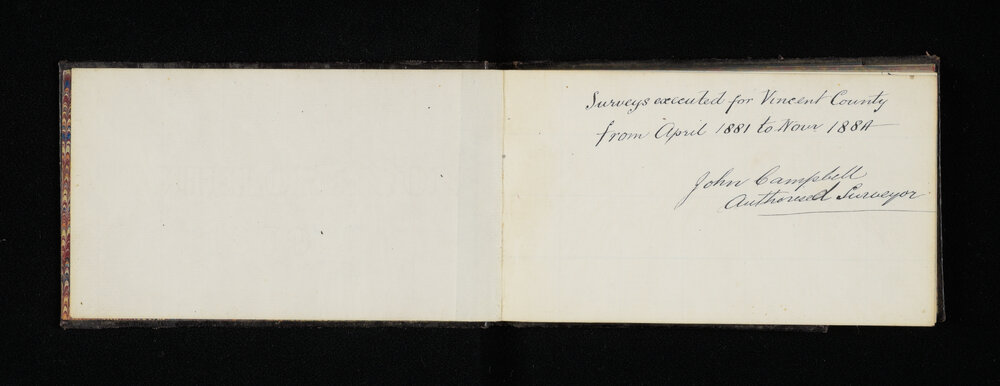 Surveys executed for Vincent County
from April 1881 to Novr 1884
John Campbell
Authorised Surveyor